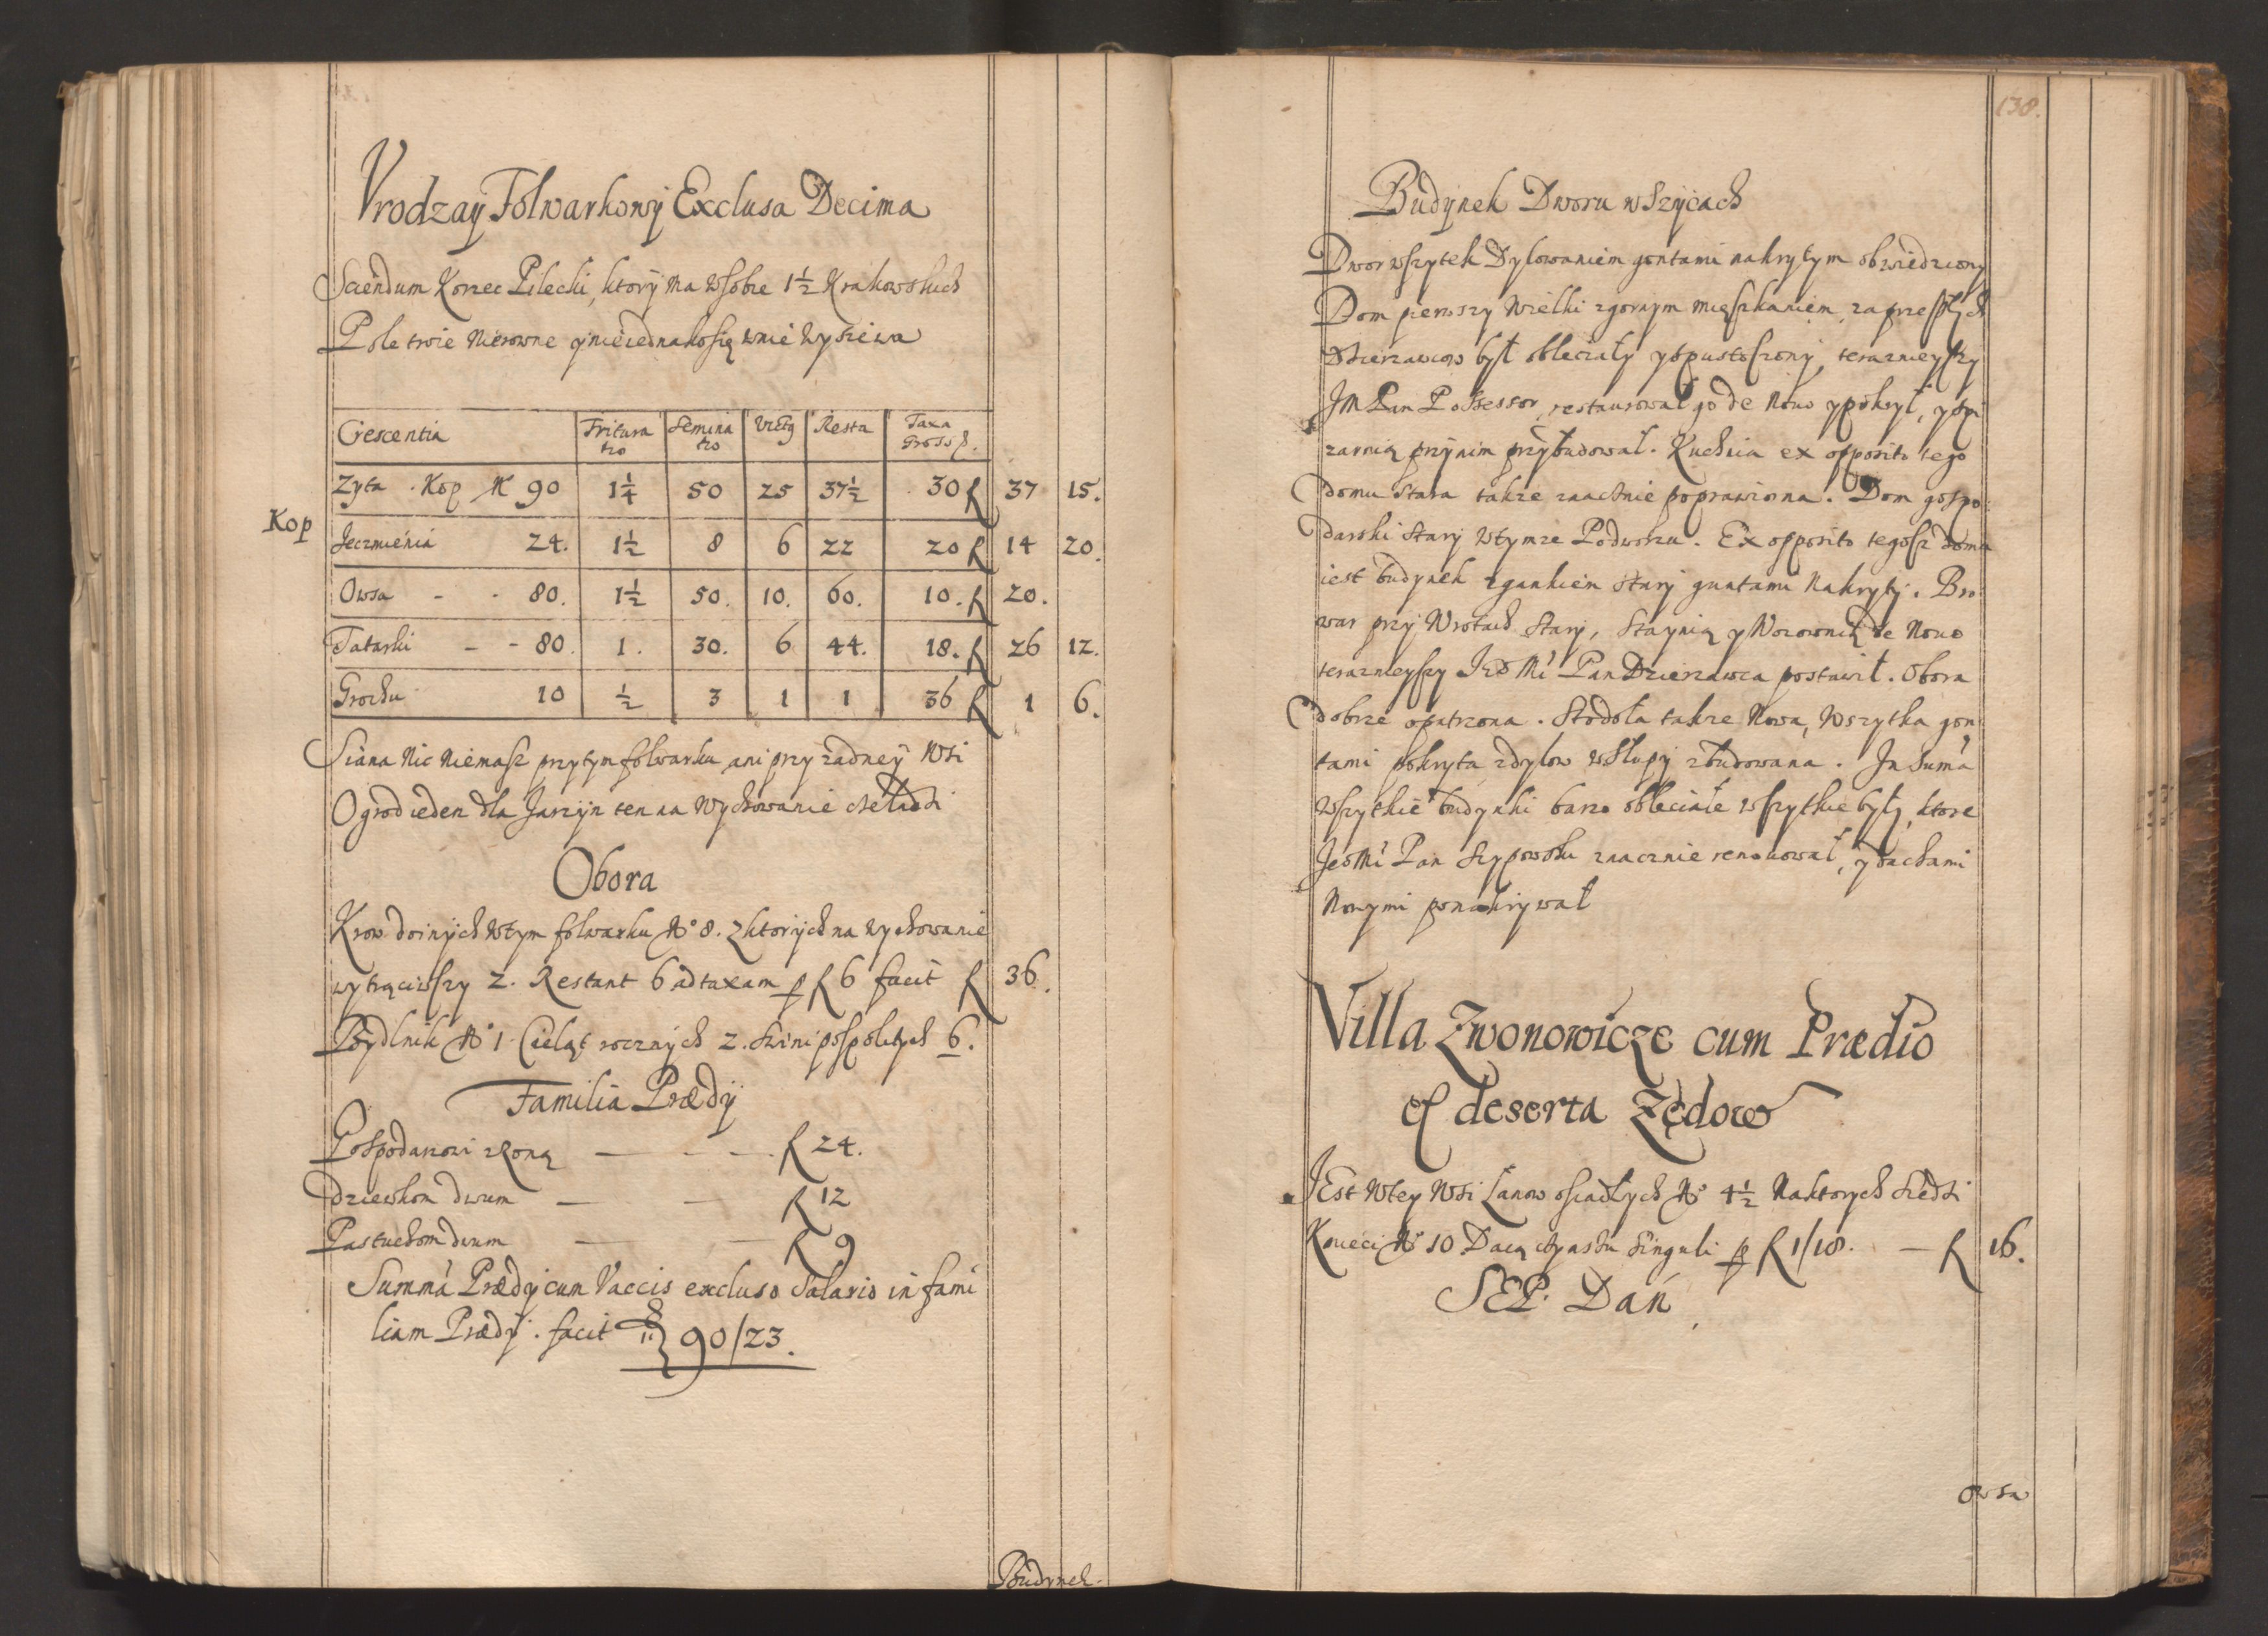 Vrodzaÿ Folwarkowÿ Exclusa Decima
Sciendum Korzec Pilecki, ktorÿ ma wsobie 1½ Krakowskich
Pole troie nierowne ÿ nieiednakosię wnie wysiewa
Crescentia | Tritura tio | Semina tio | Victg | Resta | Taxa Gross p.
Zyta . Kop N 90 | 1¼ | 50 | 25 | 37½ | 30 f | 37 | 15.
Kop
Jeczmienia 24. | 1½ | 8 | 6 | 22 | 20 f | 14 | 20
Owsa - - 80. | 1½ | 50. | 10. | 60. | 10. f | 20.
Tatarki - - 80. | 1. | 30. | 6 | 44. | 18. f | 26 | 12.
Grochu 10 | ½ | 3 | 1 | 1 | 36 f | 1 | 6.
Siana Nic Niemasz przytym folwarku ani przy zadneÿ Wsi
Ogrod ieden dla Jarzÿn ten na Wychowanie czeladzi
Obora
Krow doinÿch wtym folwarku No 8. Zktorÿch na wychowanie
wytrąciwszy 2. Restant 6 ad taxam p f 6 facit f 36.
Bÿdlnik No 1 Cieląt rocznÿch 2. Swini pospolitych 6.
Familia Prædÿ
Gospodarzowi zżoną — - - f 24.
Dziewkom dwum — — f 12
Pastuchom dwum — — f 9
Summa Prædÿ cum Vaccis excluso Salario in fami
liam Prædÿ. facit f 90/23.
Budynek.
138.
Budÿnek Dworu w Szÿcach
Dwor wszytek Dylowaniem gontami nakrytym obwiedziony
Dom pierwszy Wielki zgornym mięszkaniem, za przeszłÿch
Dzierzawcow był obleciałÿ ÿ spustoszonÿ, teraznieyszy
JM Pan Possessor, restaurował go de Novo ÿ pokrył, ÿ spi
zarnią przÿ nim przÿbudował. Kuchnia ex opposito tego
domu stara takze znacznie poprawiona. Dom gospo:
darski starÿ wtymze Podworzu. Ex opposito tegosz domu
iest budynek zgankiem starÿ guntami nakrytÿ. Bro
war przÿ Wrotach starÿ, Staynią ÿ Wozownią de Novo
teraznieyszy Jeo Mć Pan Dzierzawca postawił. Obora
dobrze opatrzona. Stodoła takze Nowa, Wszytka gon
tami pokryta zdylow w Słupÿ zbudowana. In suma
Wszytkie budynki barzo obleciałe wszytkie byłÿ, ktore
Jeo Mć Pan Szypowski znacznie renouował, ÿ dachami
Nowymi ponakrywał
Villa Zwonowicze cum Prædio
et deserta Zędow
JEst Wtey Wsi Łanow osiadłych No 4½ Naktorych siedzi
Kmieci No 10 Daią czynszu singuli p f 1/18. — f 16.
SEP. Dań
Owsa